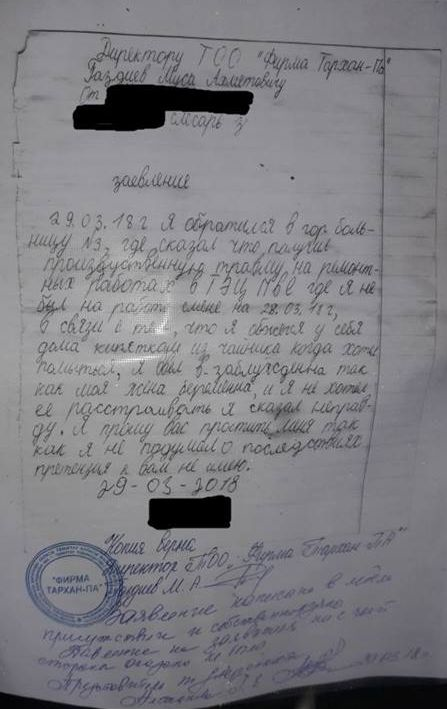 Директору ТОО "Фирма Тархан-ПВ"
Газдиев Муса Ахметовичу
От
слесарь 3
заявление
29.03.18г я обратился в гор боль-
ницу №3, где сказал что получил
производственную травму на ремонт-
ных работах в ТЭЦ ПВЛ где я не
был на работе смене на 28.03.18г,
в связи с тем, что я обжегся у себя
дома кипятком из чайника когда хотел
помыться, я ввел в заблуждения так
как моя жена беременна, и я не хотел
её расстраивать я сказал неправ-
ду. Я прошу вас простить меня так
как я не подумал о последствиях
претензия к вам не имею.
29-03-2018
Копия верна
Директор ТОО "Фирма Тархан-ПА"
Газдиев М.А
"ФИРМА
ТАРХАН-ПА"
Заявление написано в моём
присутствие и собственноручно
Давление на заявителя ни с чьей
стороны оказано не было
Представитель